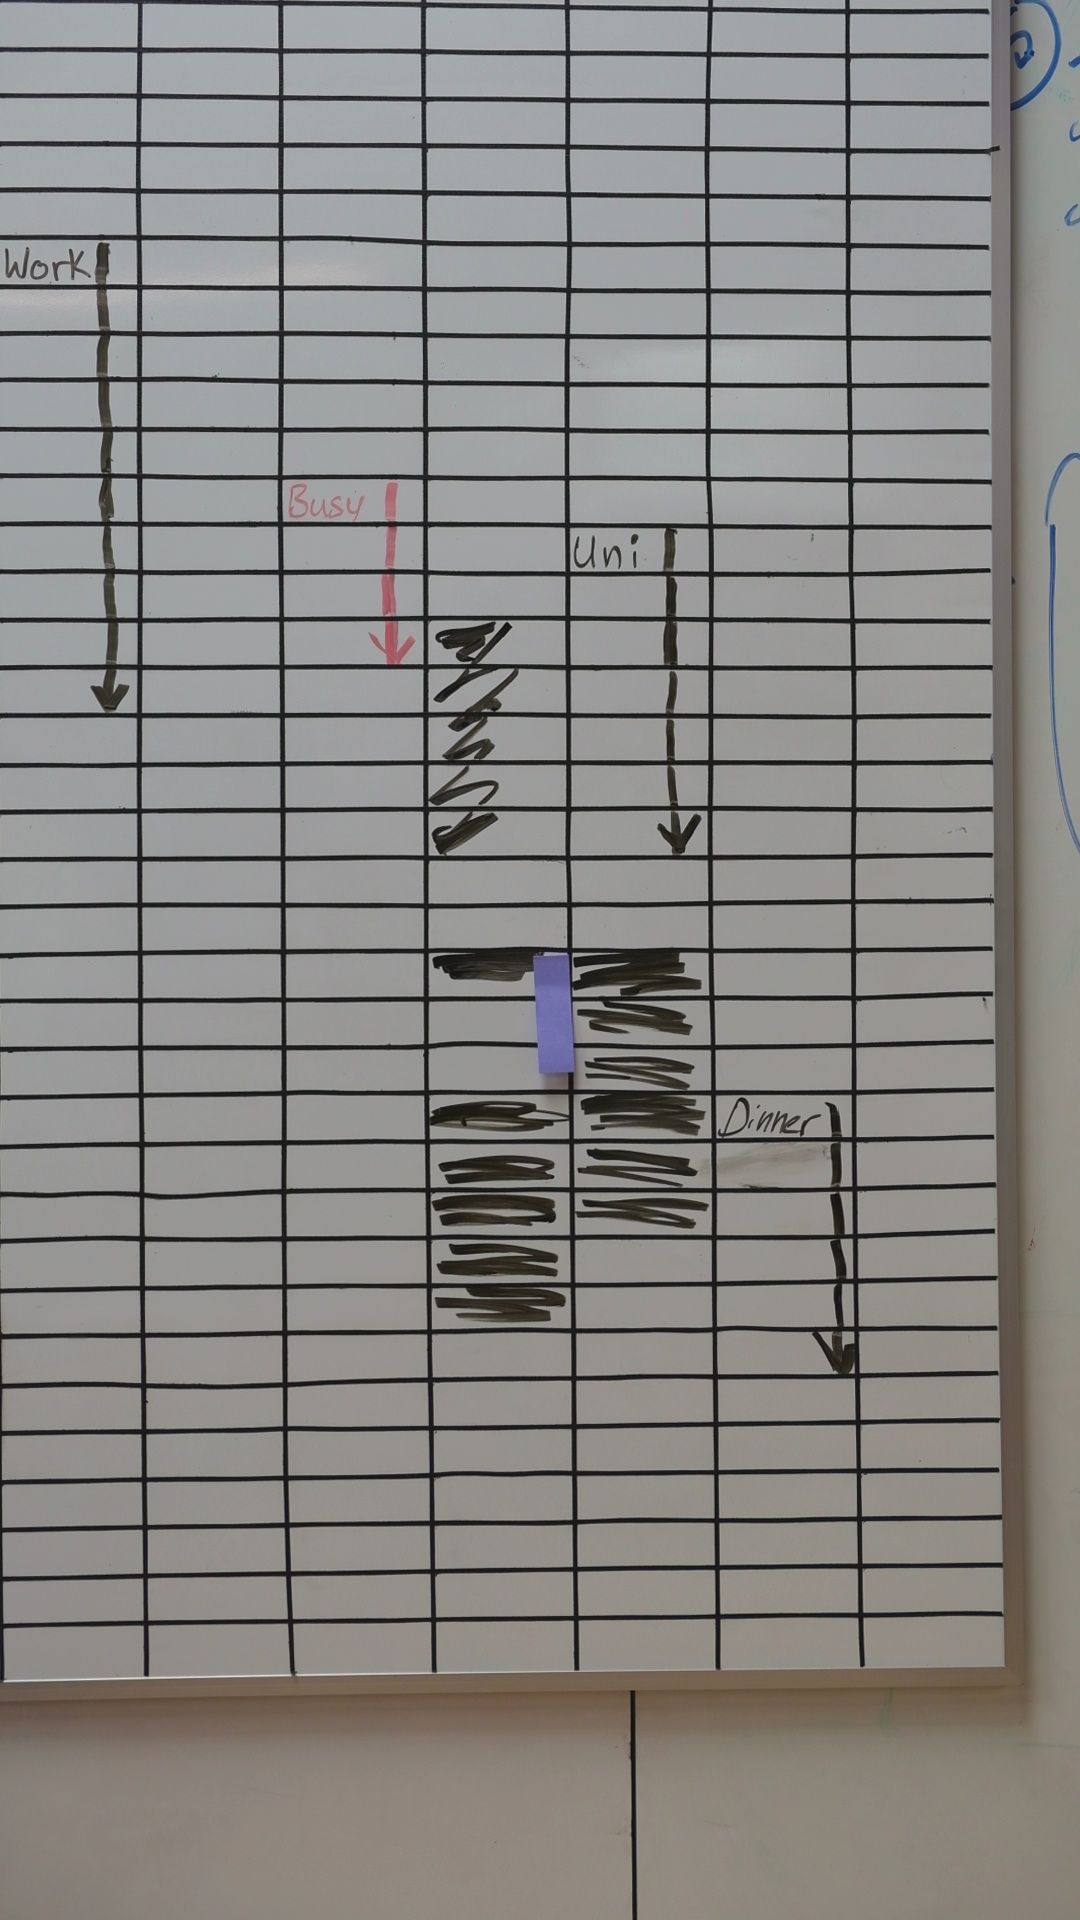 Work
Busy
Uni
Dinner